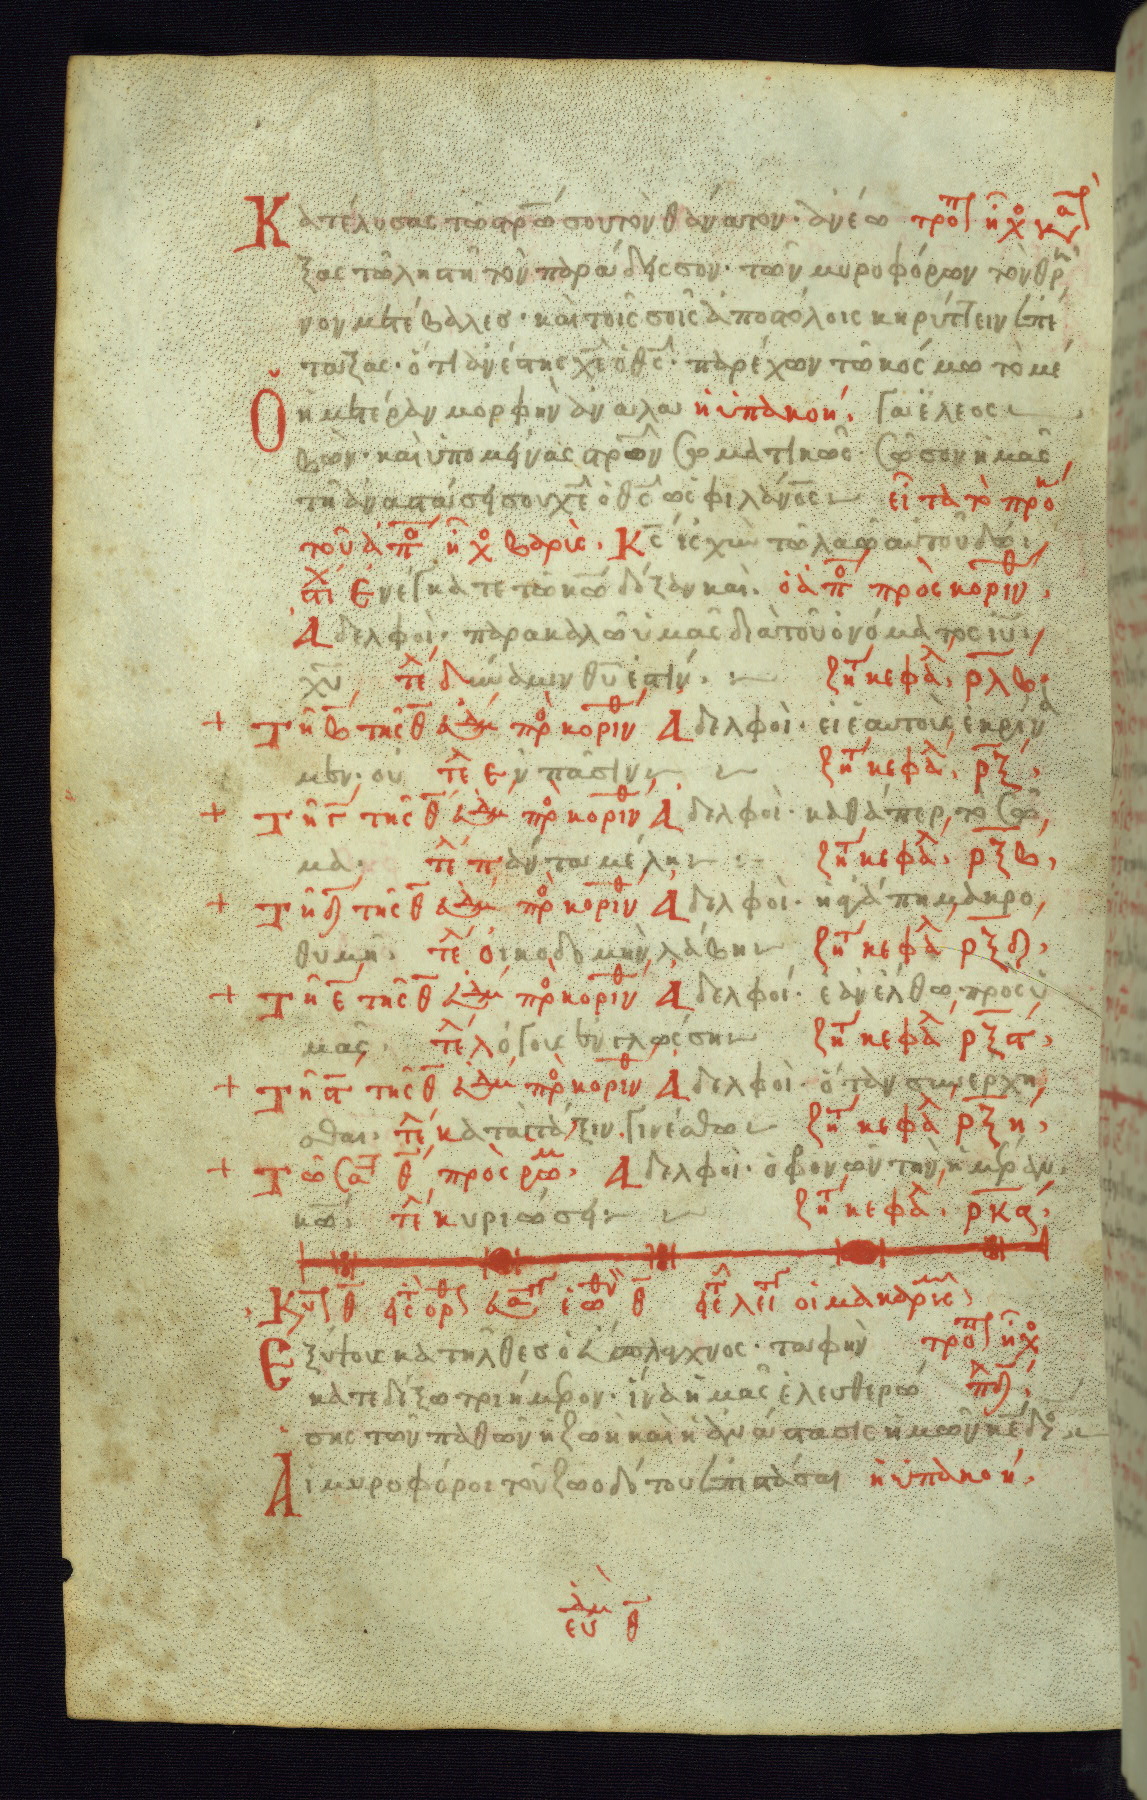 Κατέλυσας τῷ στρω σου τὸν θάνατον· ἀνέω τροπ ἦχ
ξας τῷ ληστῇ τὸν παράδεισον· τῶν μυροφόρων τὸν θρῆ
νον μετέβαλες· καὶ τοῖς σοῖς ἀποστόλοις κηρύττειν ἐπέ
ταξας· ὅτι ἀνέστης χε ὁ θς· παρέχων τῷ κόσμω τὸ μέ
Ὁ ἡμετέραν μορφὴν ἀναλα ἡ ὑπακοή. γα ἔλεος
βών· καὶ ὑπομείνας στρον σωματικῶς· σῶσον ἡμᾶς
τῇ ἀναστάσει σου χε ὁ θς ὡς φιλάνος εἰ τὰ τὸ πρ
τοῦ ἀπο ἦχ βαρις. Κς ἰσχὺν τῷ λαῷ αὐτοῦ δώ
στι Ἐνέγκατε τῷ κω δόξαν καὶ. ὁ ἀπο πρὸς κοριν θ
Ἀδελφοὶ· παρακαλῶ ὑμᾶς διὰ τοῦ ὀνόματος ιυ
χυ τε δύναμιν θυ ἐστίν. ζητ κεφα ρλβ
+ Τῇ β τῆς θ ἑβδ πρ κοριν θ Ἀδελφοὶ· εἰ ἑαυτοὺς ἐκρίνο
μεν· οὐ τε ἐν πᾶσιν ζητ κεφα. ρξ.
+ Τῇ γ τῆς θ ἑβδ πρ κοριν θ Ἀδελφοὶ· καθάπερ τὸ σῶ
μα· τε πάντα μέλη ζητ κεφα. ρξβ,
+ Τῇ δ τῆς θ ἑβδ πρ κοριν θ Ἀδελφοὶ· ἡ ἀγάπη μακρο
θυμεῖ· τε οἰκοδομὴν λάβη ζητ κεφα ρξδ.
+ Τῇ ε τῆς θ ἑβδ πρ κοριν θ Ἀδελφοὶ· ἐὰν ἔλθω πρὸς ὑ
μᾶς· τε λόγους ἐν γλώσση ζητ κεφα ρξϛ.
+ Τῇ ϛ τῆς θ ἑβδ πρ κοριν θ Ἀδελφοὶ· ὅταν συνέρχη
σθαι· τε κατὰ τάξιν γινέσθω ζητ κεφα ρξη.
+ Τῷ σα θ πρὸς ρωμ. Ἀδελφοὶ· ὁ φρονῶν τὴν ἡμέραν
κω. τε κυρίω στή ζητ κεφα, ρκα.
Κυ θ οἱ μακαρις
Ἐξ ὕψους κατῆλθες ὁ εὔσπλαγχνος· ταφὴν τροπ ἦχ
κατεδέξω τριήμερον· ἵνα ἡμᾶς ἐλευθερώ πλ δ
σης τῶν παθῶν ἡ ζωὴ καὶ ἡ ἀνάστασις ἡμῶν κε δοξ
Αἱ μυροφόροι τοῦ ζωοδότου ἐπιστᾶσαι ἡ ὑπακοή.